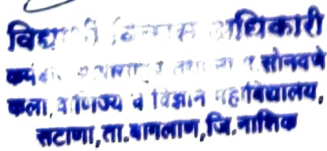 विद्यार्थी विकास अधिकारी
सोनवणे
कला, वाणिज्य व विज्ञान महाविद्यालय,
सटाणा, ता.बागलाण, जि.नाशिक